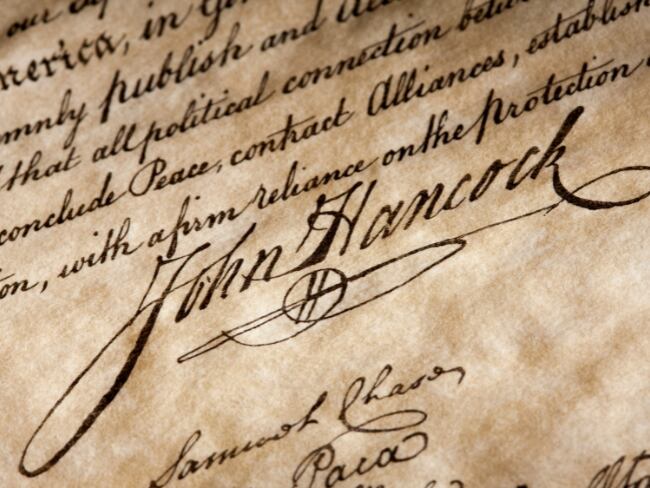 our
merica, in Gen
mnly publish and
that all political connection betwe
conclude Peace, contract Alliances, establish
on, with a firm reliance on the protection
John Hancock
Samuel Chase
Paca